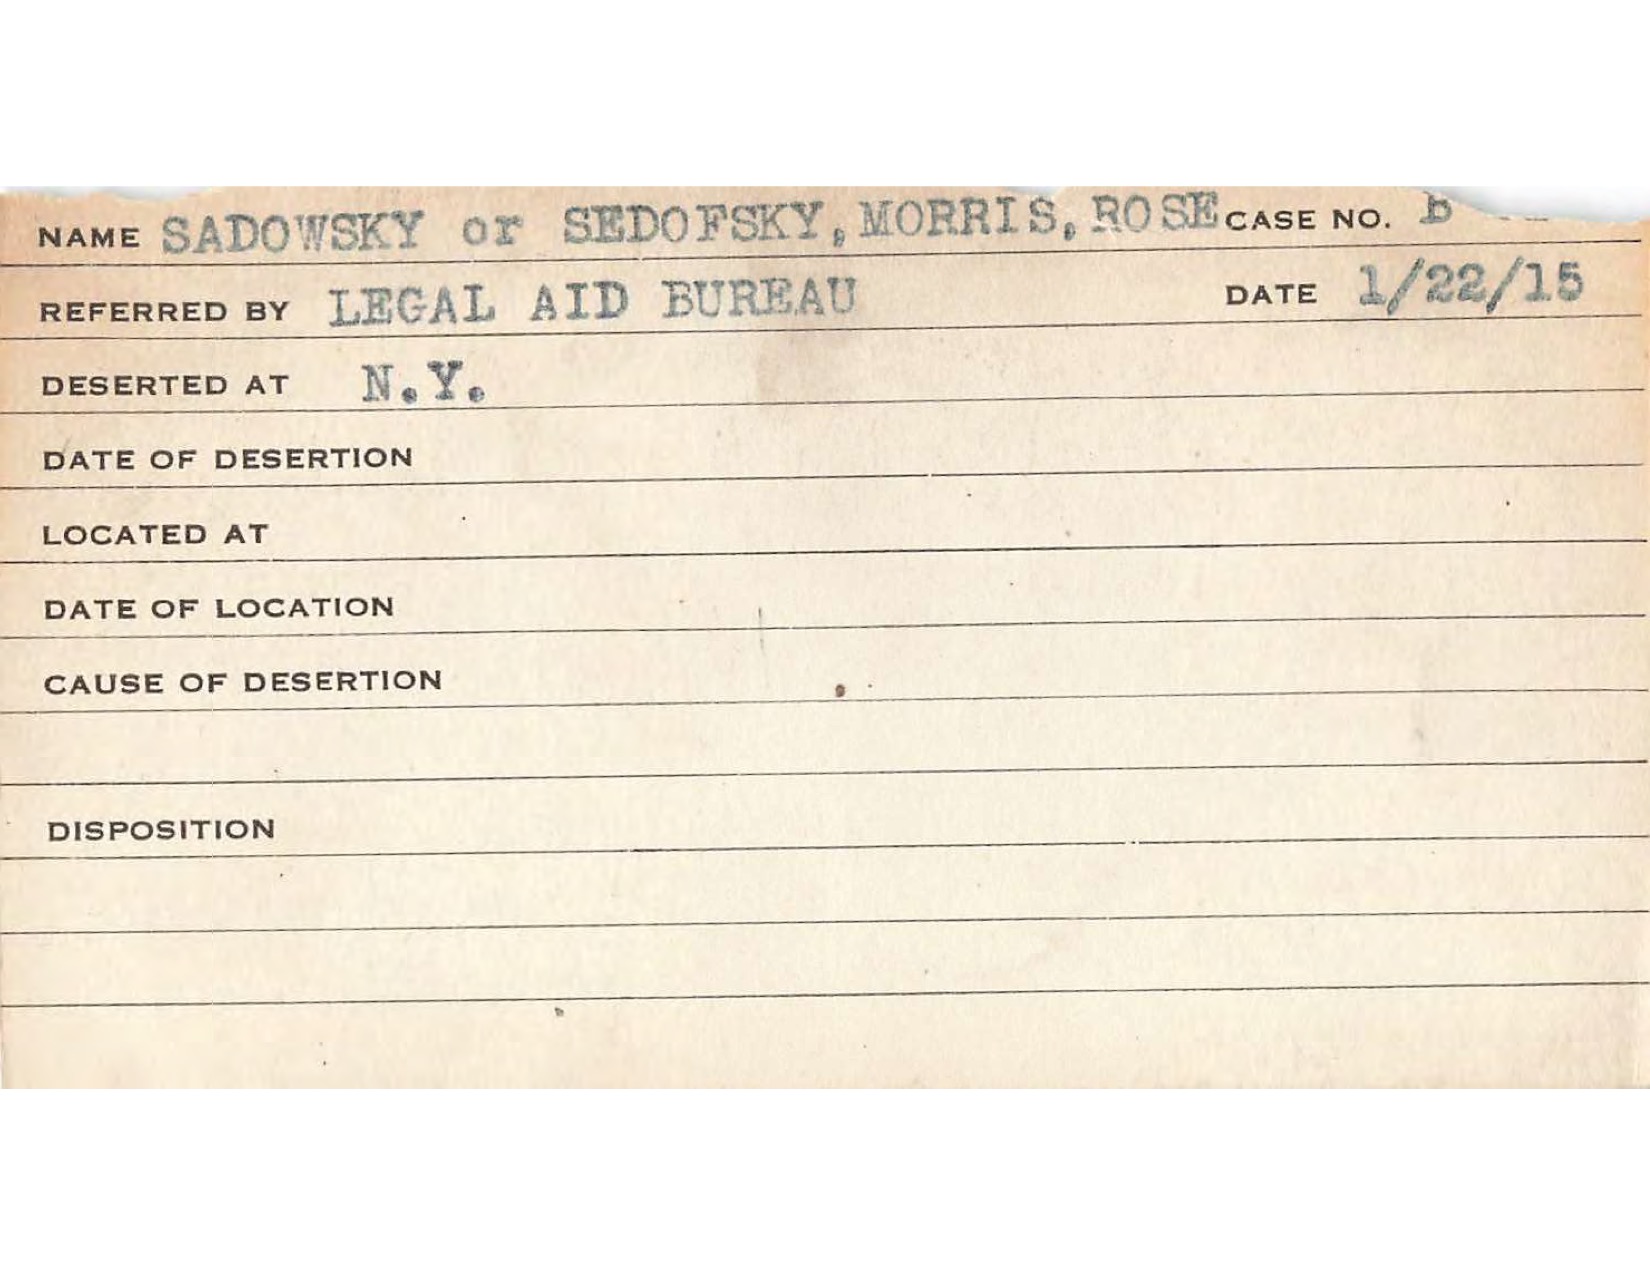 NAME SADOWSKY or SEDOFSKY, MORRIS, ROSE CASE NO. B
REFERRED BY LEGAL AID BUREAU DATE 1/22/15
DESERTED AT N.Y.
DATE OF DESERTION
LOCATED AT
DATE OF LOCATION
CAUSE OF DESERTION
DISPOSITION